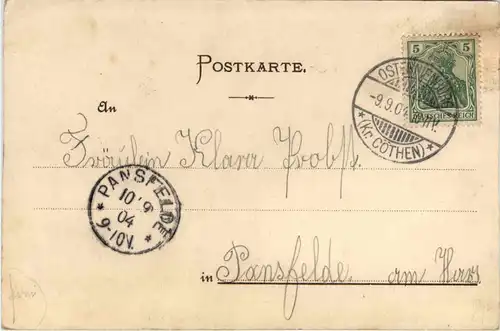 POSTKARTE.
5
DEUTSCHES REICH
-9.9.04
*(Kr. CÖTHEN)*
An
Fräulein Klara Probst.
* PANSFELDE *
10 9
04
9-10V.
in Pansfelde. am Harz